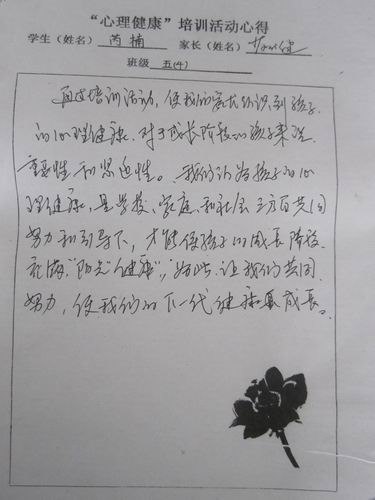 “心理健康”培训活动心得
学生（姓名） 芮楠 家长（姓名）
班级 五(4)
通过培训活动，使我们家长认识到孩子
的心理健康，对于成长阶段的孩子来说
重要性和紧迫性。我们认为孩子的心
理健康，是学校、家庭、和社会三方面共同
努力和引导下，才能使孩子的成长阶段
充满“阳光”“健康”，为此让我们共同
努力，使我们的下一代健康成长。